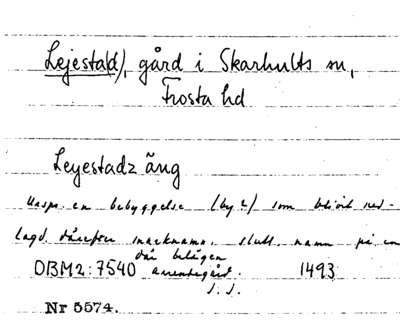 Lejesta(d), gård i Skarhults sn,
Frosta hd
Leyestadz äng
en bebyggelse (by?) som blivit ned-
lagd, därefter slutl. namn på en
där belägen
DBM2:7540 arrendegård. 1493
J. S.
Nr 5574.